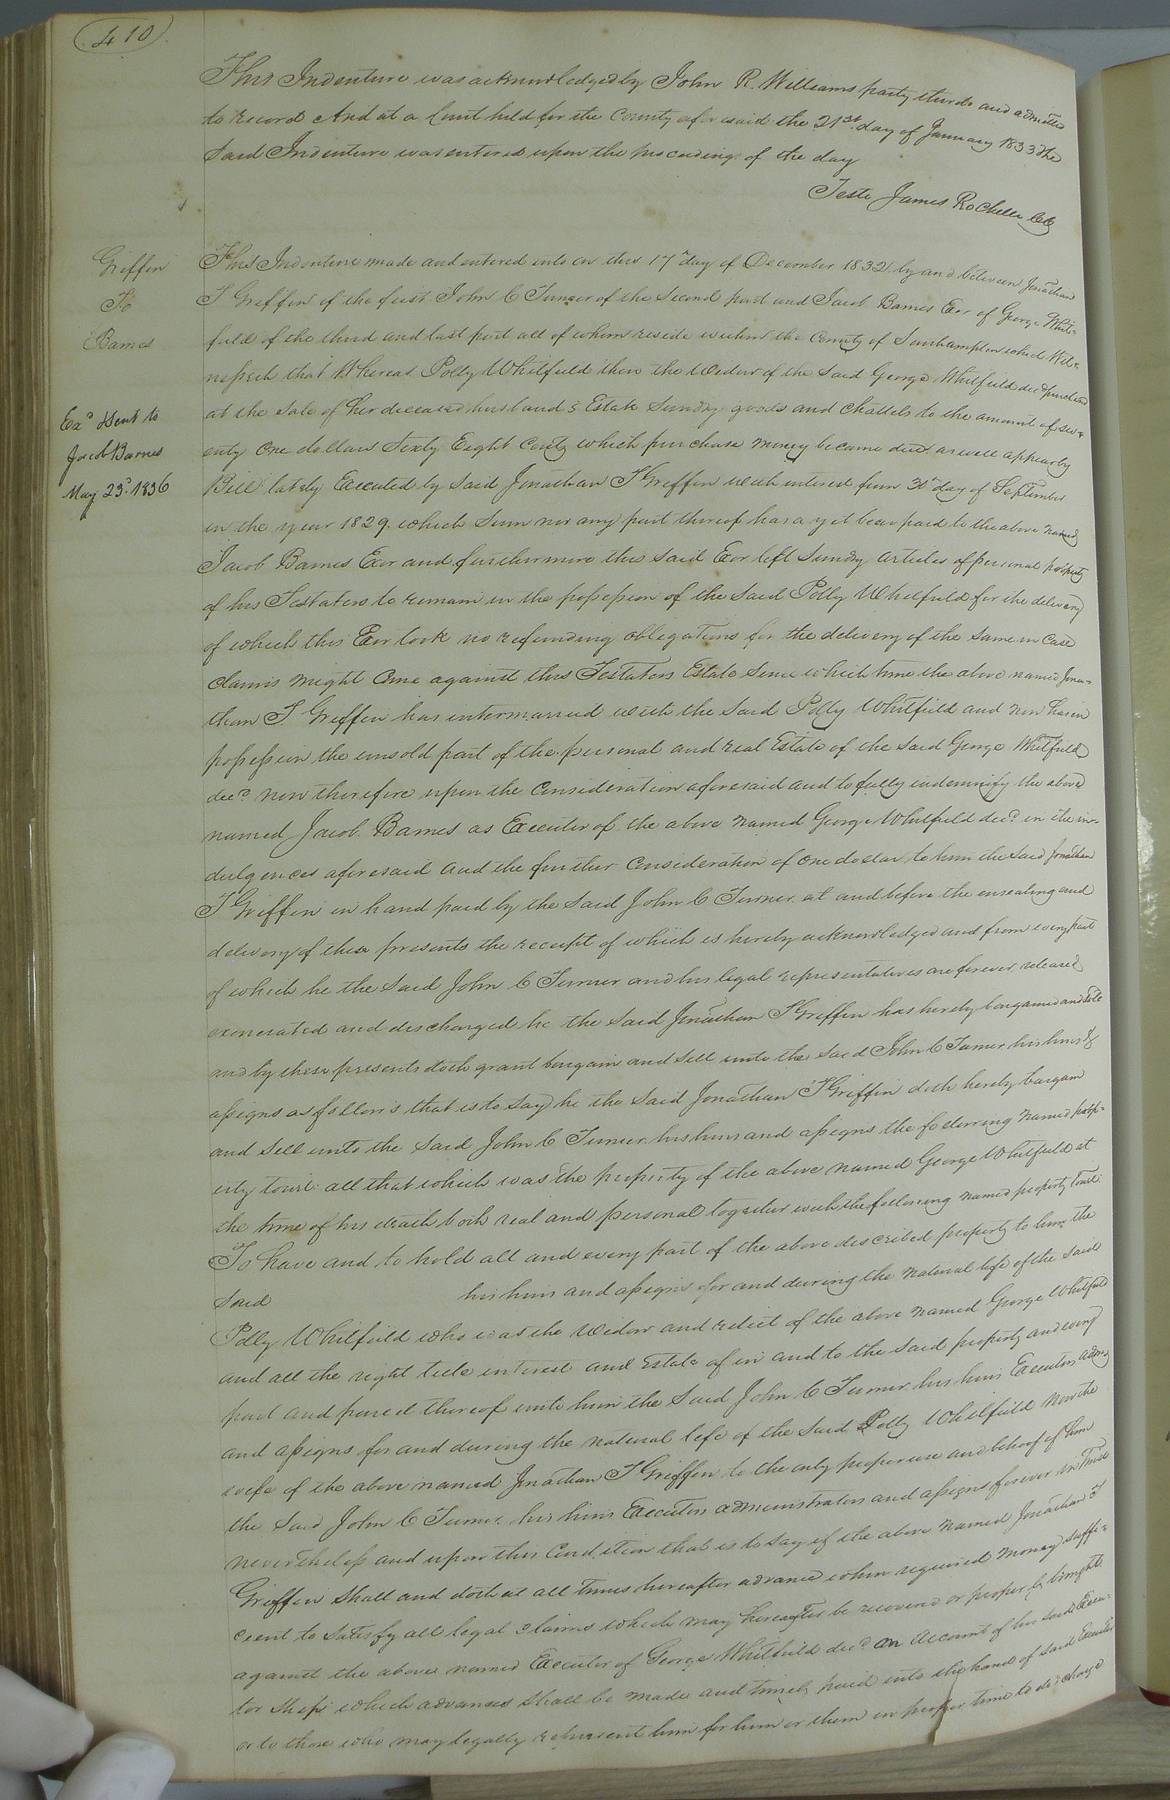 410
This Indenture was acknowledged by John R. Williams party thereto and admitted
to record And at a Court held for the County aforesaid the 21st day of January 1833 the
said Indenture was entered upon the proceedings of the day
Teste James Rochelle CC
Griffin
To
Barnes
Exd Sent to
Jacob Barnes
May 23d. 1836
This Indenture made and entered into on this 17th day of December 1832 by and between Jonathan
T Griffin of the first John C Turner of the second part and Jacob Barnes Exr of George Whit-
field of the third and last part all of whom reside within the County of Southampton which Wit-
nesseth that Whereas Polly Whitfield then the Widow of the said George Whitfield decd purchased
at the sale of her deceased husband's Estate Sundry goods and Chattels to the amount of sev-
enty one dollars Sixty Eight Cents which purchase money became due as will appear by
Bill lately Executed by said Jonathan T Griffin with interest from 30th day of September
in the year 1829. which Sum nor any part thereof has as yet been paid to the above named
Jacob Barnes Exor and furthermore this said Exor left Sundry articles of personal property
of his Testators to remain in the possession of the said Polly Whitfield for the delivery
of which this Exor took no refunding obligations for the delivery of the same in Case
claims might Come against this Testators Estate Since which time the above named Jona-
than T Griffin has intermarried with the said Polly Whitfield and now has in
possession the unsold part of the personal and real Estate of the said George Whitfield
decd. now therefore upon the Consideration aforesaid and to fully indemnify the above
named Jacob Barnes as Executor of the above named George Whitfield decd. in the in-
dulgences aforesaid and the further Consideration of one dollar to him the said Jonathan
T Griffin in hand paid by the said John C Turner at and before the ensealing and
delivery of these presents the receipt of which is hereby acknowledged and from every part
of which he the said John C Turner and his legal representatives are forever released
exonerated and discharged he the said Jonathan T Griffin has hereby bargained and sold
and by these presents doth grant bargain and sell unto the said John C Turner his heirs &
assigns as follows that is to say he the said Jonathan T Griffin doth hereby bargain
and sell unto the said John C Turner his heirs and assigns the following named prop-
erty towit: all that which was the property of the above named George Whitfield at
the time of his death both real and personal together with the following named property towit
To have and to hold all and every part of the above described property to him the
said his heirs and assigns for and during the natural life of the said
Polly Whitfield who was the Widow and relict of the above named George Whitfield
and all the right title interest and Estate of in and to the said property and every
part and parcel thereof unto him the said John C Turner his heirs Executors admrs
and assigns for and during the natural life of the said Polly Whitfield now the
wife of the above named Jonathan T Griffin to the only proper use and behoof of him
the said John C Turner his heirs Executors administrators and assigns forever in Trust
nevertheless and upon this Condition that is to say if the above named Jonathan T
Griffin shall and doth at all times hereafter advance when required money suffi-
cient to satisfy all legal claims which may hereafter be recovered or properly brought
against the above named Executor of George Whitfield decd. on account of his said Execu-
tor ship which advances shall be made and timely paid into the hand of said Executor
or to those who may legally represent him for him or them in proper time to discharge